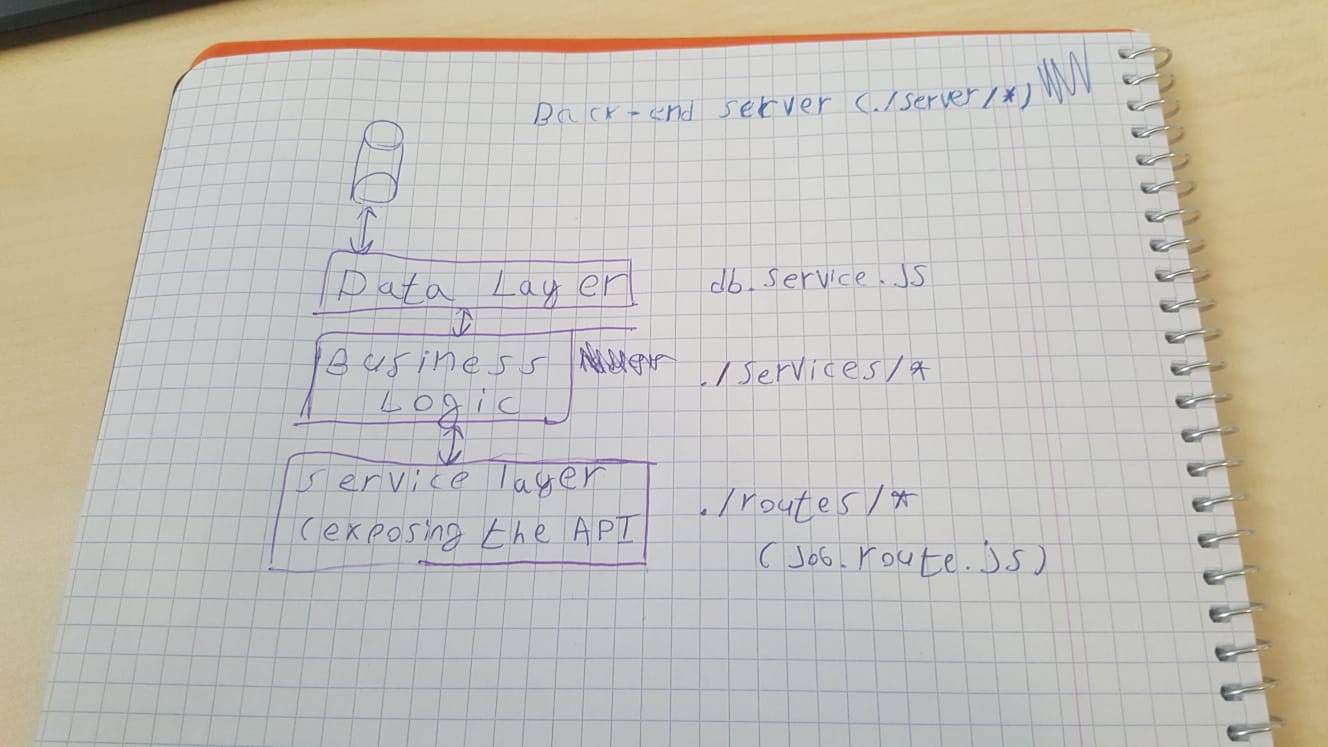 Back-end server (./server/*)
Data Layer
db.service.js
Business
Logic
./services/*
Service layer
(exposing the API
./routes/*
(job.route.js)